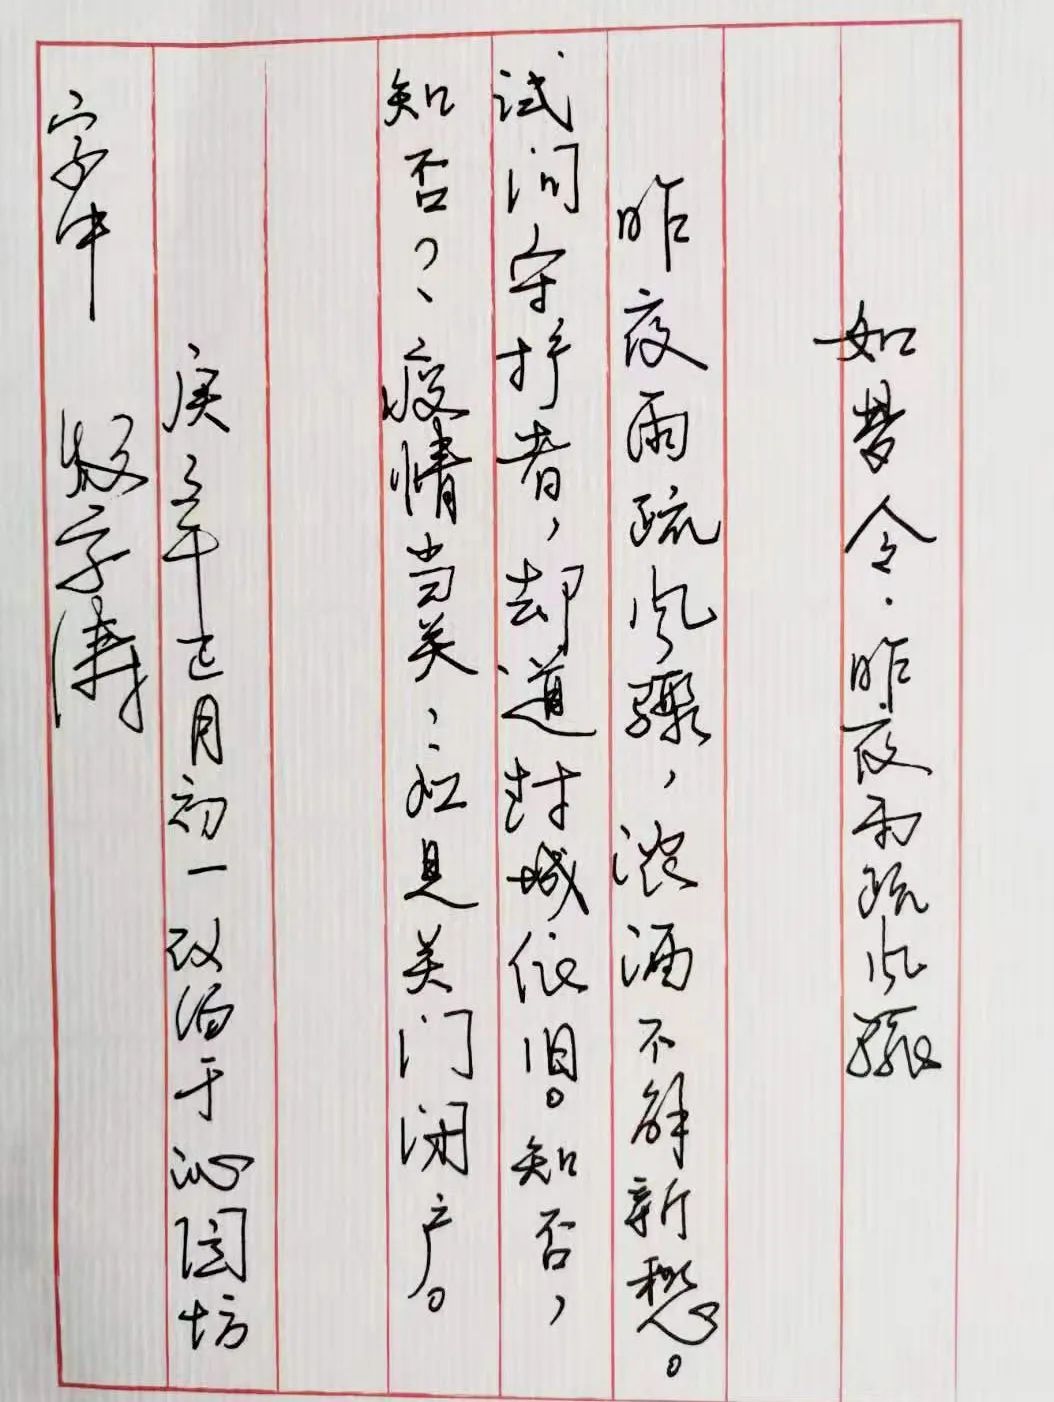 如梦令·昨夜雨疏风骤
昨夜雨疏风骤,浓酒不解新愁。
试问守护者,却道封城依旧。知否,
知否?疫情当关:应是关门闭户。
庚子年正月初一改泊于沁园坊
字中